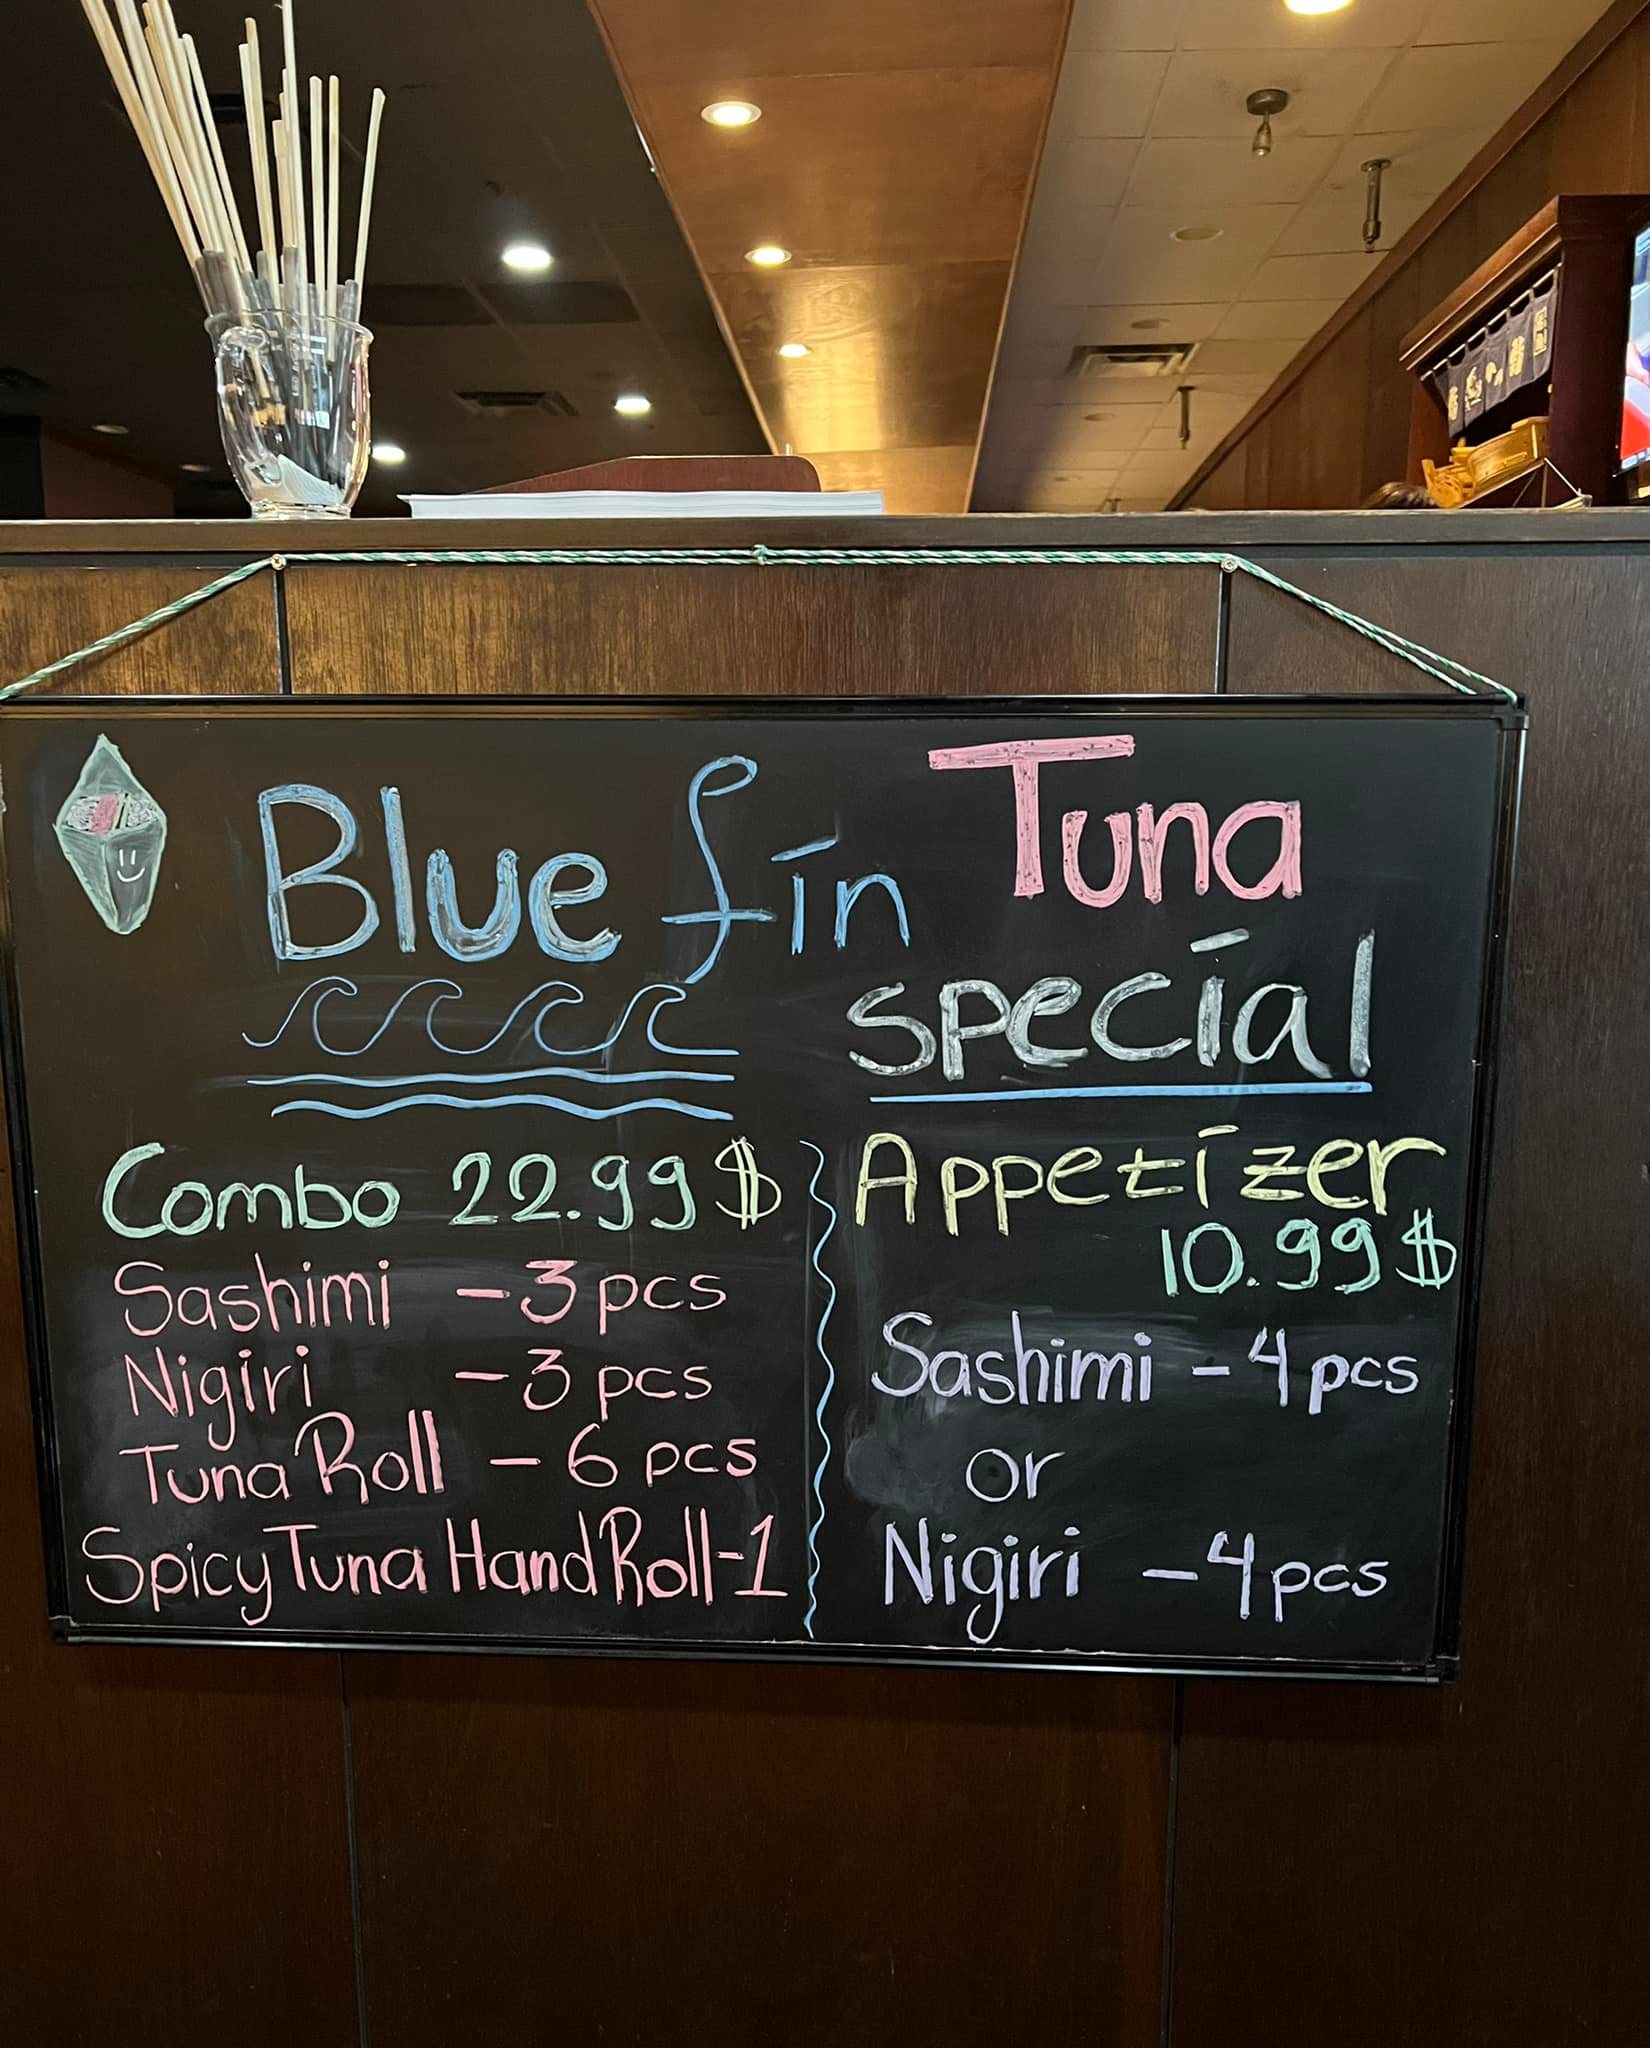 Blue fin Tuna
special
Combo 22.99$
Sashimi - 3 pcs
Nigiri - 3 pcs
Tuna Roll - 6 pcs
Spicy Tuna Hand Roll - 1
Appetizer
10.99$
Sashimi - 4 pcs
or
Nigiri - 4 pcs